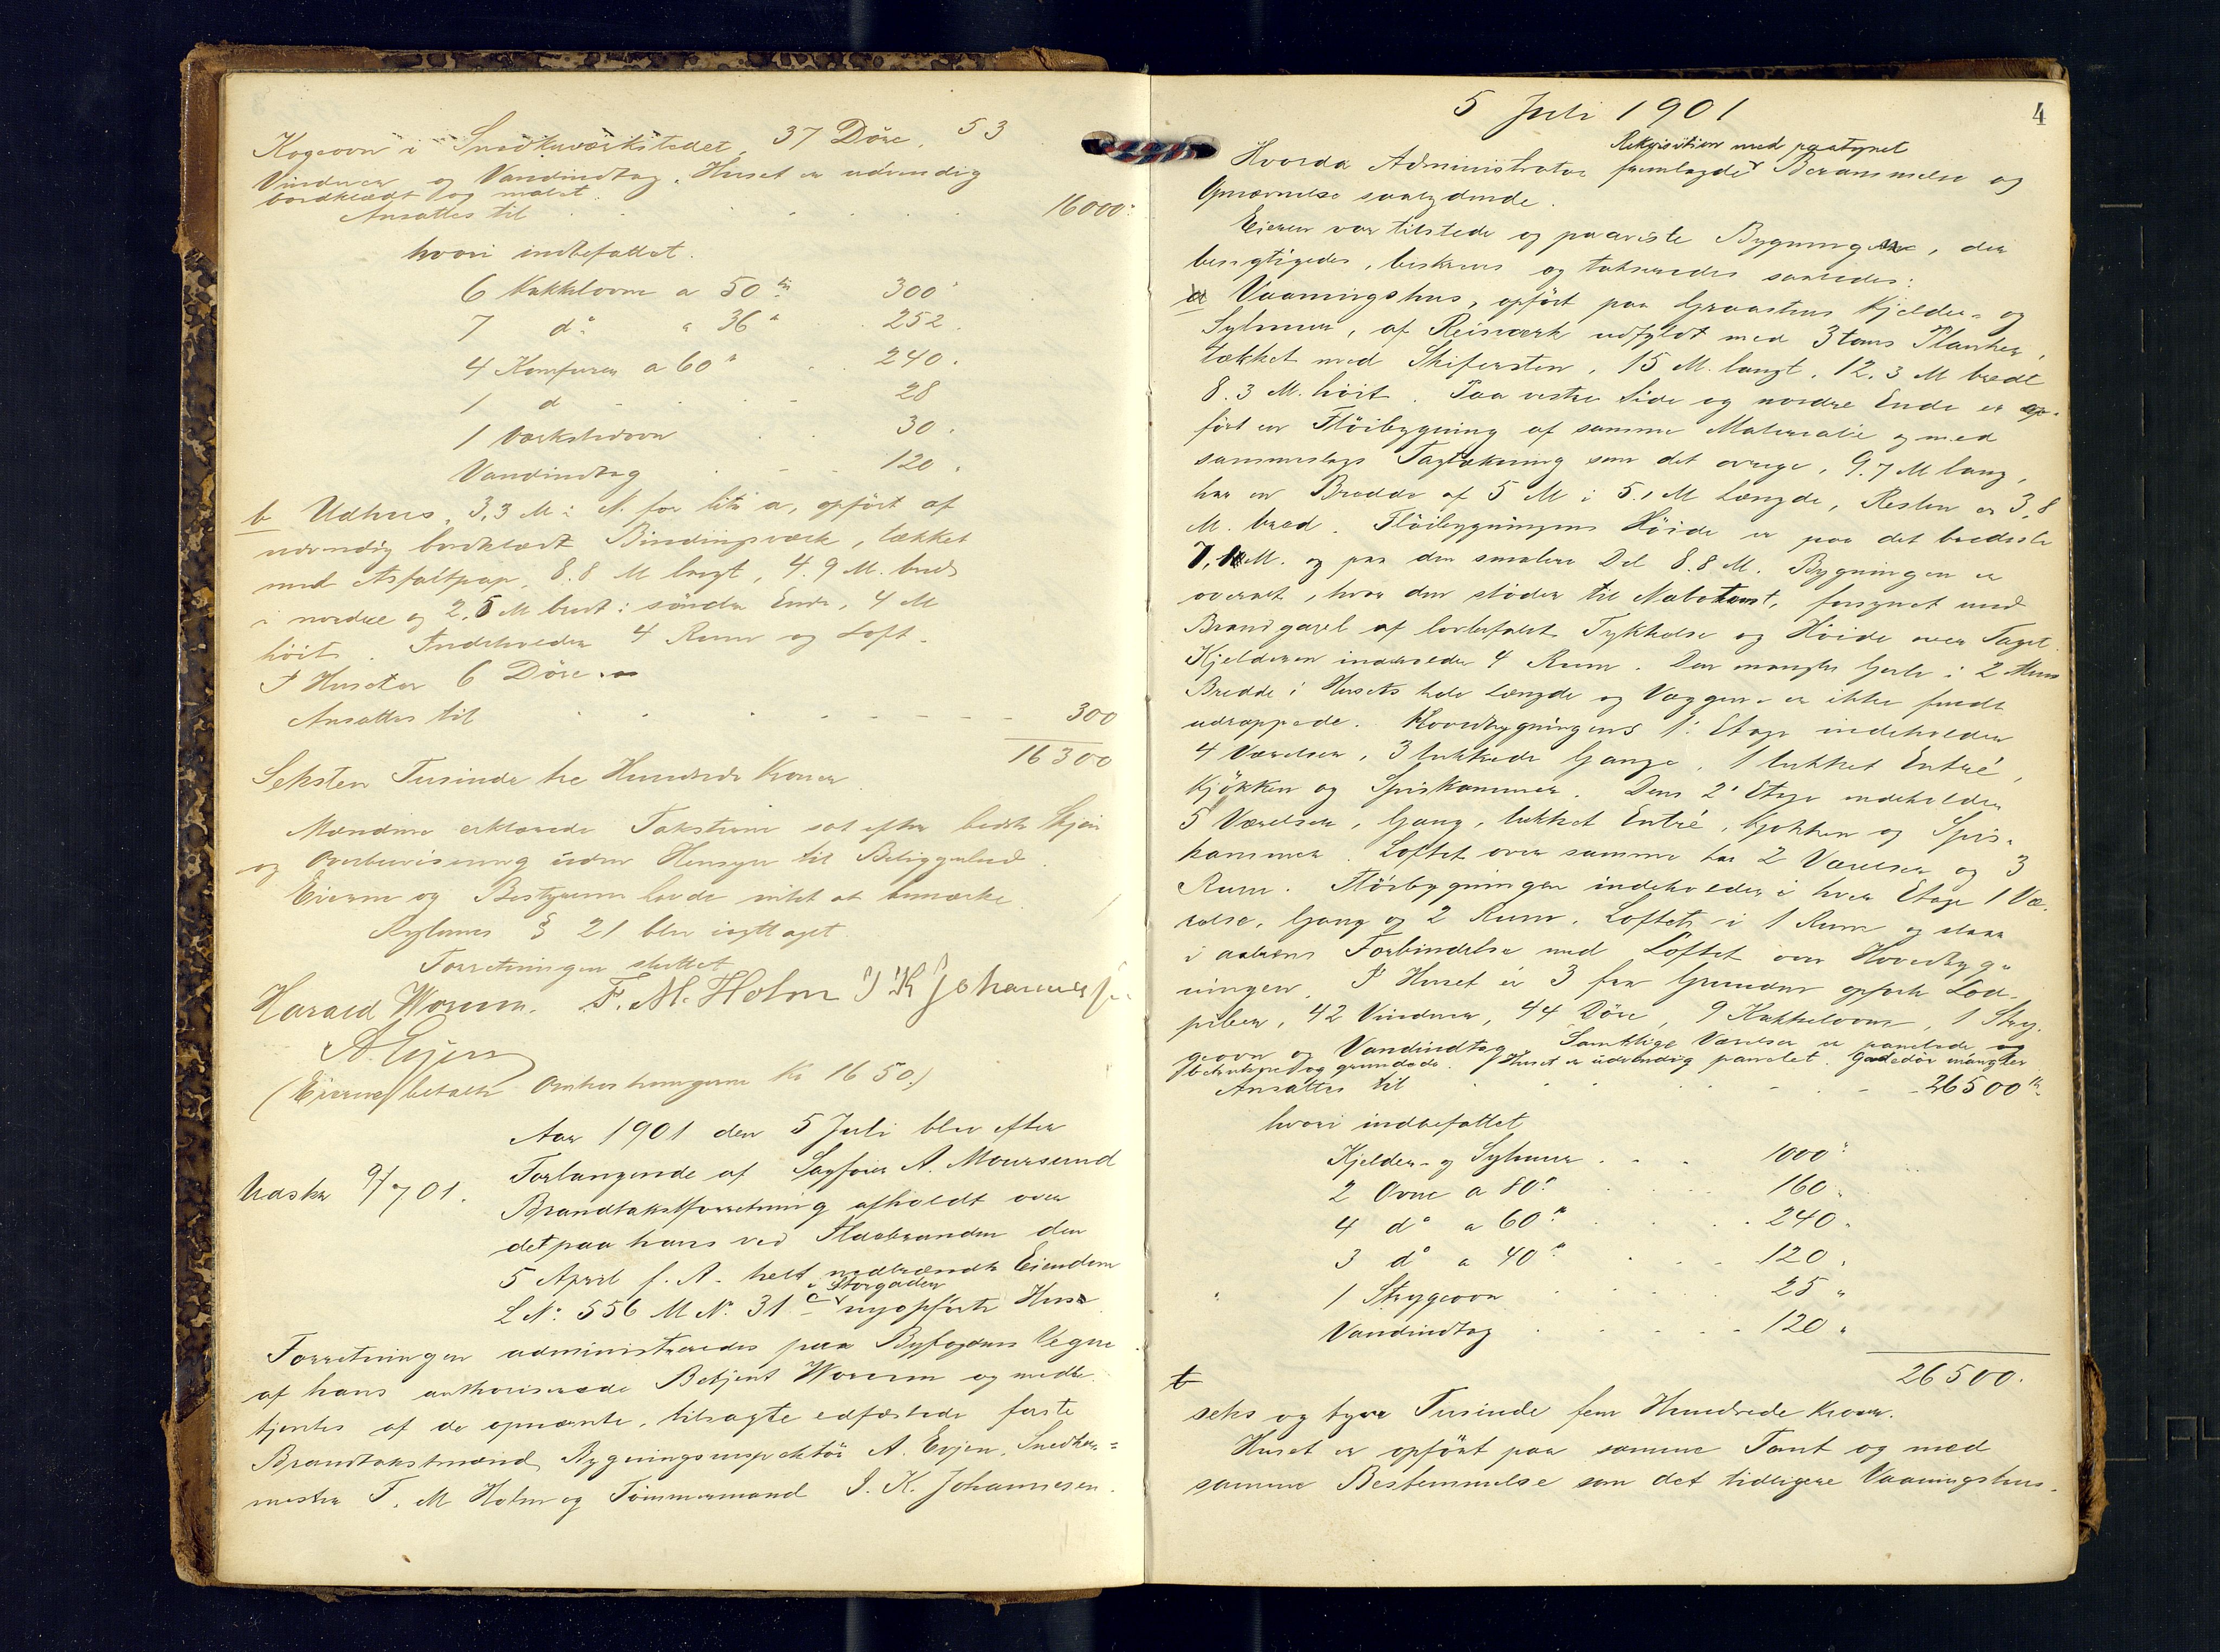 Kogeovn i Snedkerværkstedet, 37 Döre, 53
Vinduer og Vandindtag. Huset er udvendig
bordklædt og malet.
Ansattes til 16000"
hvori indbefattet.
6 Kakkelovne a 50 kr 300"
7 do a 36" 252.
4 Komfurer a 60" 240.
1 d 28
1 Værkstedovn 30.
Vandindtag 120.
b Udhus, 3,3 M i N. for litr a, opført af
udvendig bordklædt Bindingsværk, tækket
med Asfaltpap, 8.8 M langt, 4.9 M. bredt
i nordre og 2,5 M bredt i söndre Ende, 4 M
höit. Indeholder 4 Rum og Loft.
I Huset er 6 Döre.
Ansattes til 300
16300
Seksten Tusinde tre Hundrede Kroner
Mændene erklærede Taksterne sat efter bedste Skjön
og Overbevisning uden Hensyn til Beliggenhed.
Eierne og Bestyreren havde intet at bemærke.
Reglernes § 21 blev iagttaget.
Forretningen sluttet
Harald Worum. F. M. Holm J K Johannesen
A. Evjen
(Eierne betalte Omkostningerne Kr 16 50.)
Aar 1901 den 5 Juli blev efter
Udskr 9/7 01.
Forlangende af Sagförer A. Moursund
Brandtakstforretning afholdt over
det paa hans ved Ildebranden den
5 April f. A. helt nedbrændte Eiendom
i Storgaden
L No 556 M No 31 c nyopförte Hus
Forretningen administreredes paa Byfogdens Vegne
af hans authoriserede Betjent Worum og medbe-
tjentes af de opnævnte, tilsagte edfæstede faste
Brandtakstmænd Bygningsinspektör A. Evjen, Snedker-
mester F. M Holm og Tömmermand J. K. Johannesen.
4
5 Juli 1901
Rekvisition med paategnet
Hvorda Administrator fremlagde Berammelse og
Opnævnelse saalydende.
Eieren var tilstede og paaviste Bygningen, der
besigtigedes, beskreves og takseredes saaledes:
a Vaaningshus, opfört paa Graastens Kjelder- og
Sylmur, af Reisværk udfyldt med 3 toms Planker,
tækket med Skifersten, 15 M. langt, 12.3 M bredt
8.3 M. höit. Paa vestre Side og nordre Ende er op-
fört en Flöibygning af samme Materiale og med
sammeslags Tagtækning som det övrige, 9.7 M lang,
har en Bredde af 5 M i 5.1 M Længde, Resten er 3,8
M. bred. Flöibygningens Höide er paa det bredeste
7. M. og paa den smalere Del 8.8 M. Bygningen er
overalt, hvor den stöder til Nabotomt, forsynet med
Brandgavl af lovbefalet Tykkelse og Höide over Taget.
Kjelderen indeholder 4 Rum. Der mangler Gulv i 2 Meters
Bredde i Husets hele Længde og Væggene er ikke fuldt
udrappede. Hovedbygningens 1' Etage indeholder
4 Værelser, 3 lukkede Gange, 1 lukket Entré,
Kjökken og Spiskammer. Dens 2' Etage indeholder
5 Værelser, Gang, lukket Entré, Kjökken og Spis-
kammer. Loftet over samme har 2 Værelser og 3
Rum. Flöibygningen indeholder i hver Etage 1 Væ-
relse, Gang og 2 Rum. Loftet i 1 Rum og staar
i aabent Forbindelse med Loftet over Hovedbyg-
ningen. I Huset er 3 fra Grunden opförte Lod-
piber, 42 Vinduer, 44 Döre, 9 Kakkelovne, 1 Stry-
geovn og Vandindtag. Samtlige Værelser er panelede og
betrukne og grundede. Huset er udvendig panelet. Gadedör mangler
Ansattes til 26500 kr
hvori indbefattet
Kjelder- og Sylmur 1000"
2 Ovne a 80 " 160 "
4 do a 60 " 240 "
3 do a 40 " 120 "
1 Strygeovn 25 "
Vandindtag 120 "
26500.
b
seks og tyve Tusinde fem Hundrede Kroner.
Huset er opfört paa samme Tomt og med
samme Bestemmelse som det tidligere Vaaningshus.